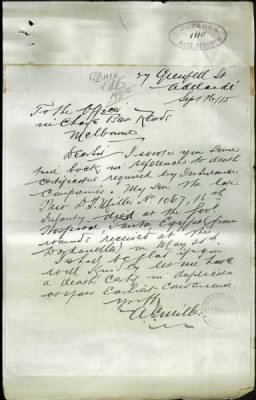 DEFENCE
1110
BASE RECORDS
27 Grenfell St
Adelaide
Sept 16/15
To the Officer
in Charge Base Records
Melbourne
Dear Sir I wrote you some
time back in reference to death
certificates required by Insurance
Companies. My Son the late
Miller No 1067, 16th
Infantry, died at the
Hospital, Egypt (from
wounds received at the
Dardanelles) in May and
I shall be glad if you
will kindly let me have
a death Certif in duplicate
at your Earliest Convenience
Yours
Miller